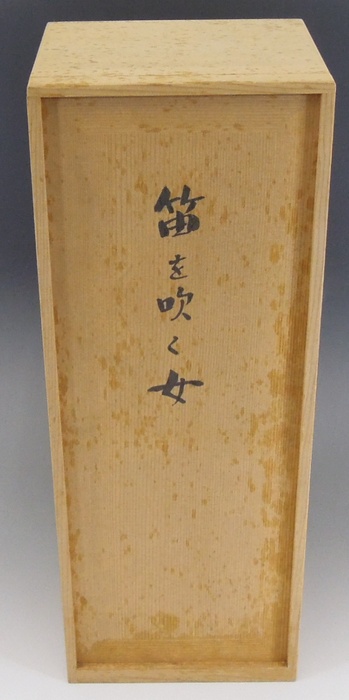 笛を吹く女